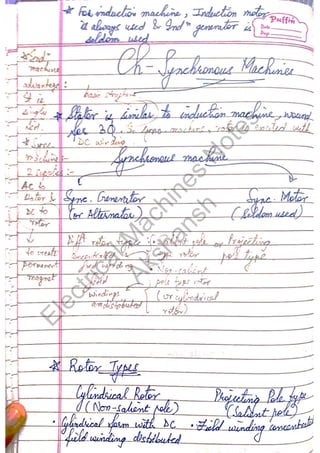 * For induction machine, Induction motor
is always used & Indⁿ generator is
seldom used
Puffin
Date
Page
Ch- Synchronous Machines
* Indⁿ
machine
advantage:
It is
singly
fed.
* Sync.
machine:-
2 supplies:-
AC to
stator &
DC to
rotor
↓
to create
permanent
magnet
basic structure
* Stator is similar to induction machine, wound
for 3Ø. In sync. machine, rotor is excited with
DC winding
Synchronous machine
Sync. Generator
(or Alternator)
Sync. Motor
(Seldom used)
rotor types: salient pole or Projecting
pole type
concentrated
field winding
Non-salient
pole type rotor
(or cylindrical
rotor)
windings
are distributed
Electrical Machines Notes
Akshansh
* Rotor Types
Cylindrical Rotor
(Non-Salient pole)
Projecting Pole type
(Salient pole)
• Cylindrical form with DC
field winding distributed
• Field winding concentrated